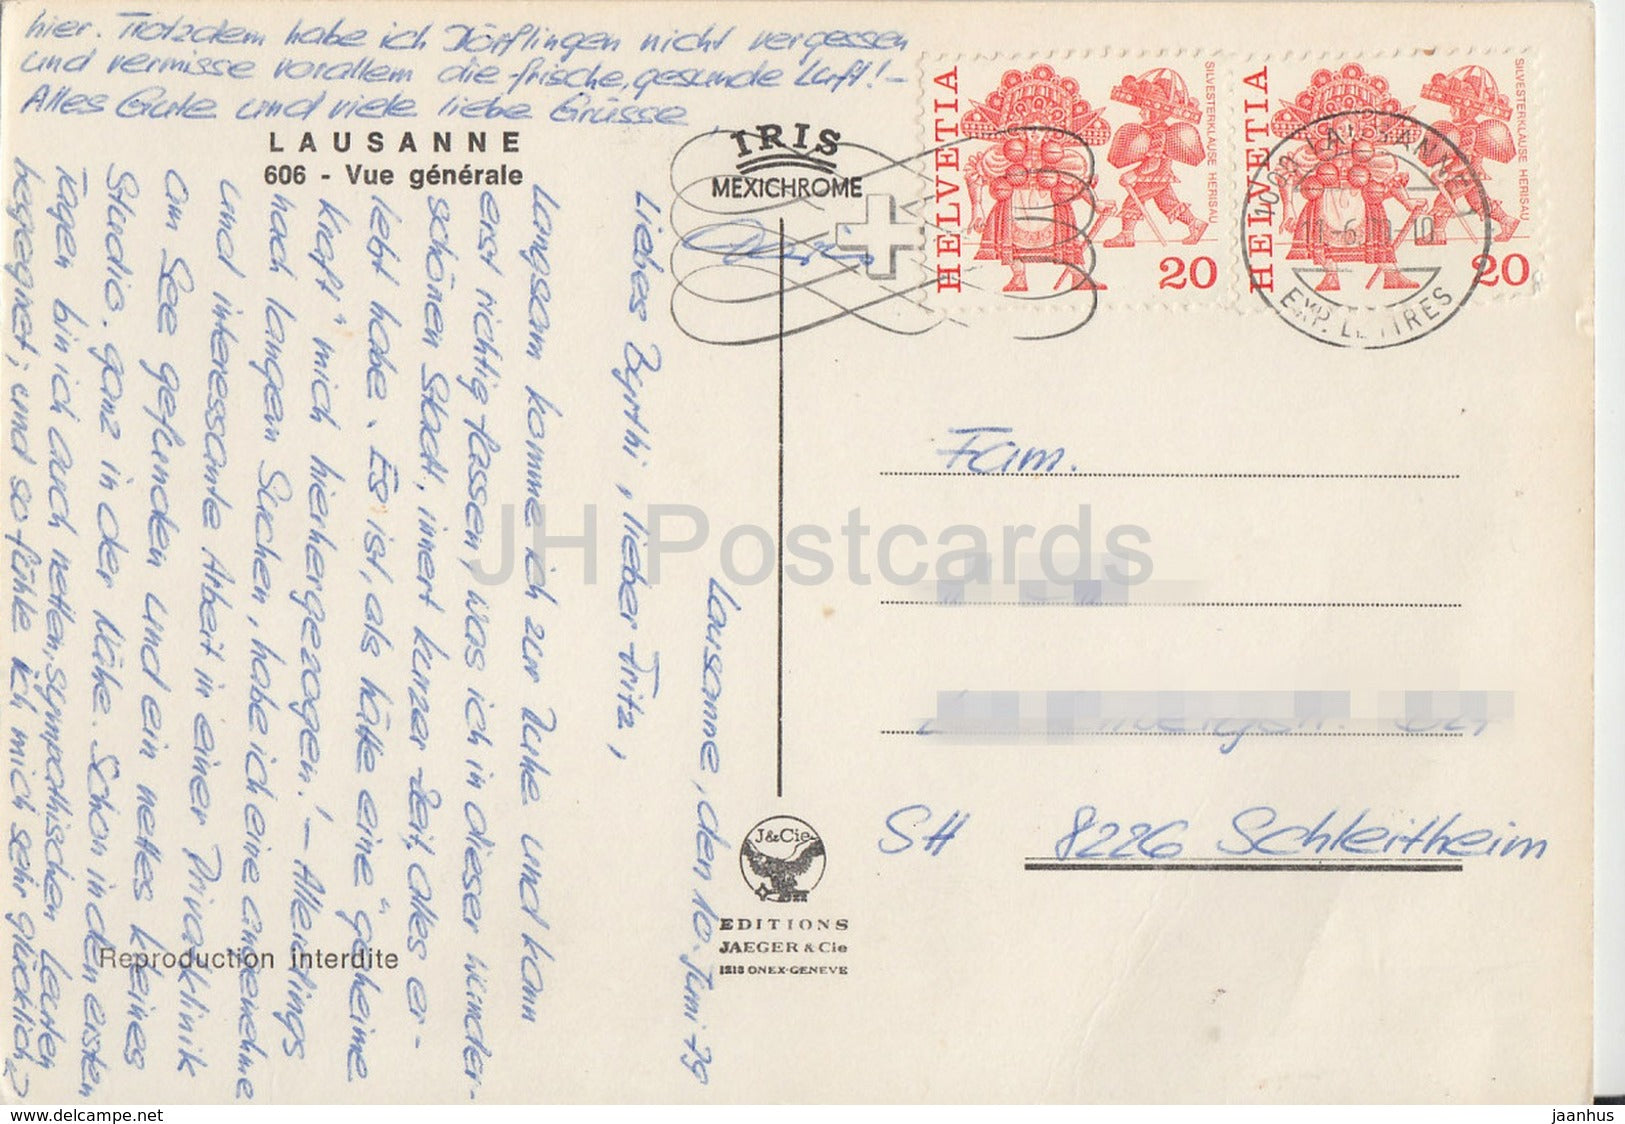 Lausanne, den 10. Juni 79
Liebes Byrthi, lieber Fritz,
Langsam komme ich zur Ruhe und kann
erst richtig fassen, was ich in dieser wunder-
schönen Stadt, innert kurzer Zeit, alles er-
lebt habe. Es ist, als hätte eine "geheime
Kraft" mich hierhergezogen! - Allerdings
nach langem Suchen, habe ich eine angenehme
und interessante Arbeit in einer Privatklinik
am See gefunden und ein nettes kleines
Studio, ganz in der Nähe. Schon in den ersten
Tagen bin ich auch netten, sympathischen Leuten
begegnet; und so fühle ich mich sehr glücklich
hier. Trotzdem habe ich Dörflingen nicht vergessen
und vermisse vorallem die frische, gesunde Luft! -
Alles Gute und viele liebe Grüsse
LAUSANNE
606 - Vue générale
Reproduction interdite
IRIS
MEXICHROME
J&Cie
EDITIONS
JAEGER & Cie
1213 ONEX-GENEVE
HELVETIA
SILVESTERKLÄUSE HERISAU
20
HELVETIA
SILVESTERKLÄUSE HERISAU
20
1002 LAUSANNE 1
EXP. LETTRES
Fam.
SH 8226 Schleitheim
JH Postcards
delcampe.net
jaanhus